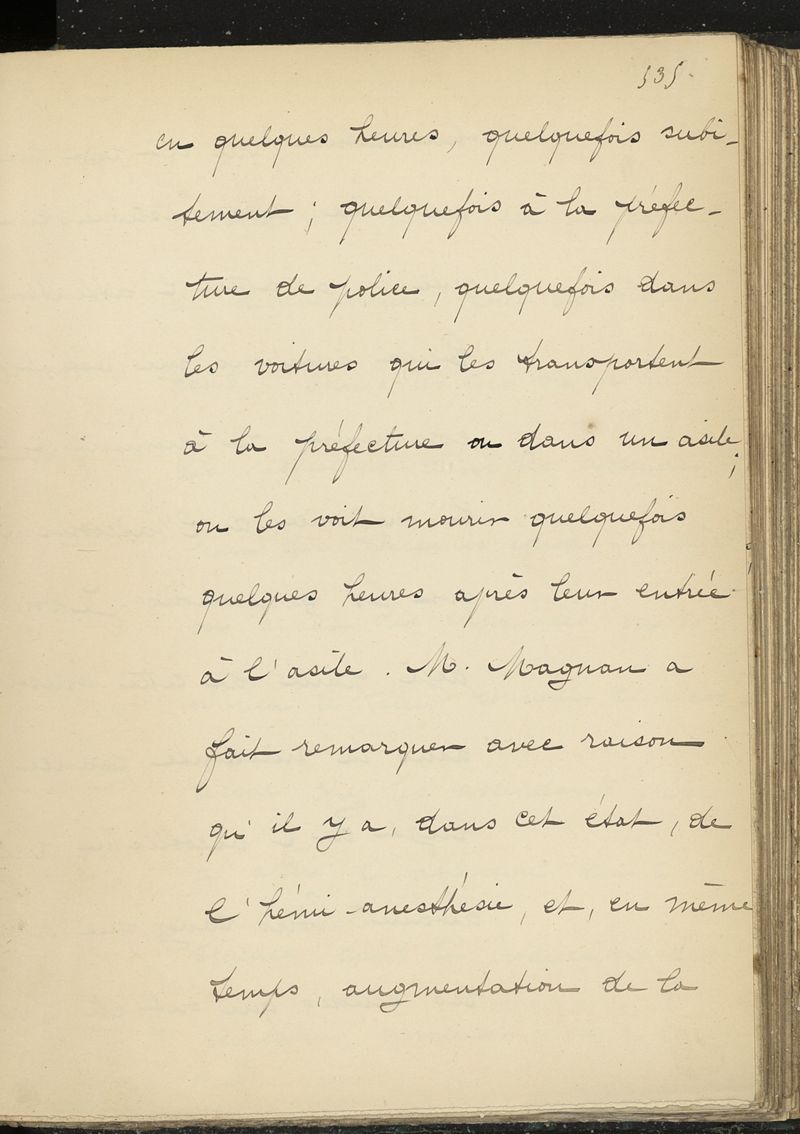 535.
en quelques heures, quelquefois subi-
tement ; quelquefois à la préfec-
ture de police, quelquefois dans
les voitures qui les transportent
à la préfecture ou dans un asile ;
on les voit mourir quelquefois
quelques heures après leur entrée
à l'asile. M. Magnan a
fait remarquer avec raison
qu'il y a, dans cet état, de
l'hémi-anesthésie, et, en même
temps, augmentation de la